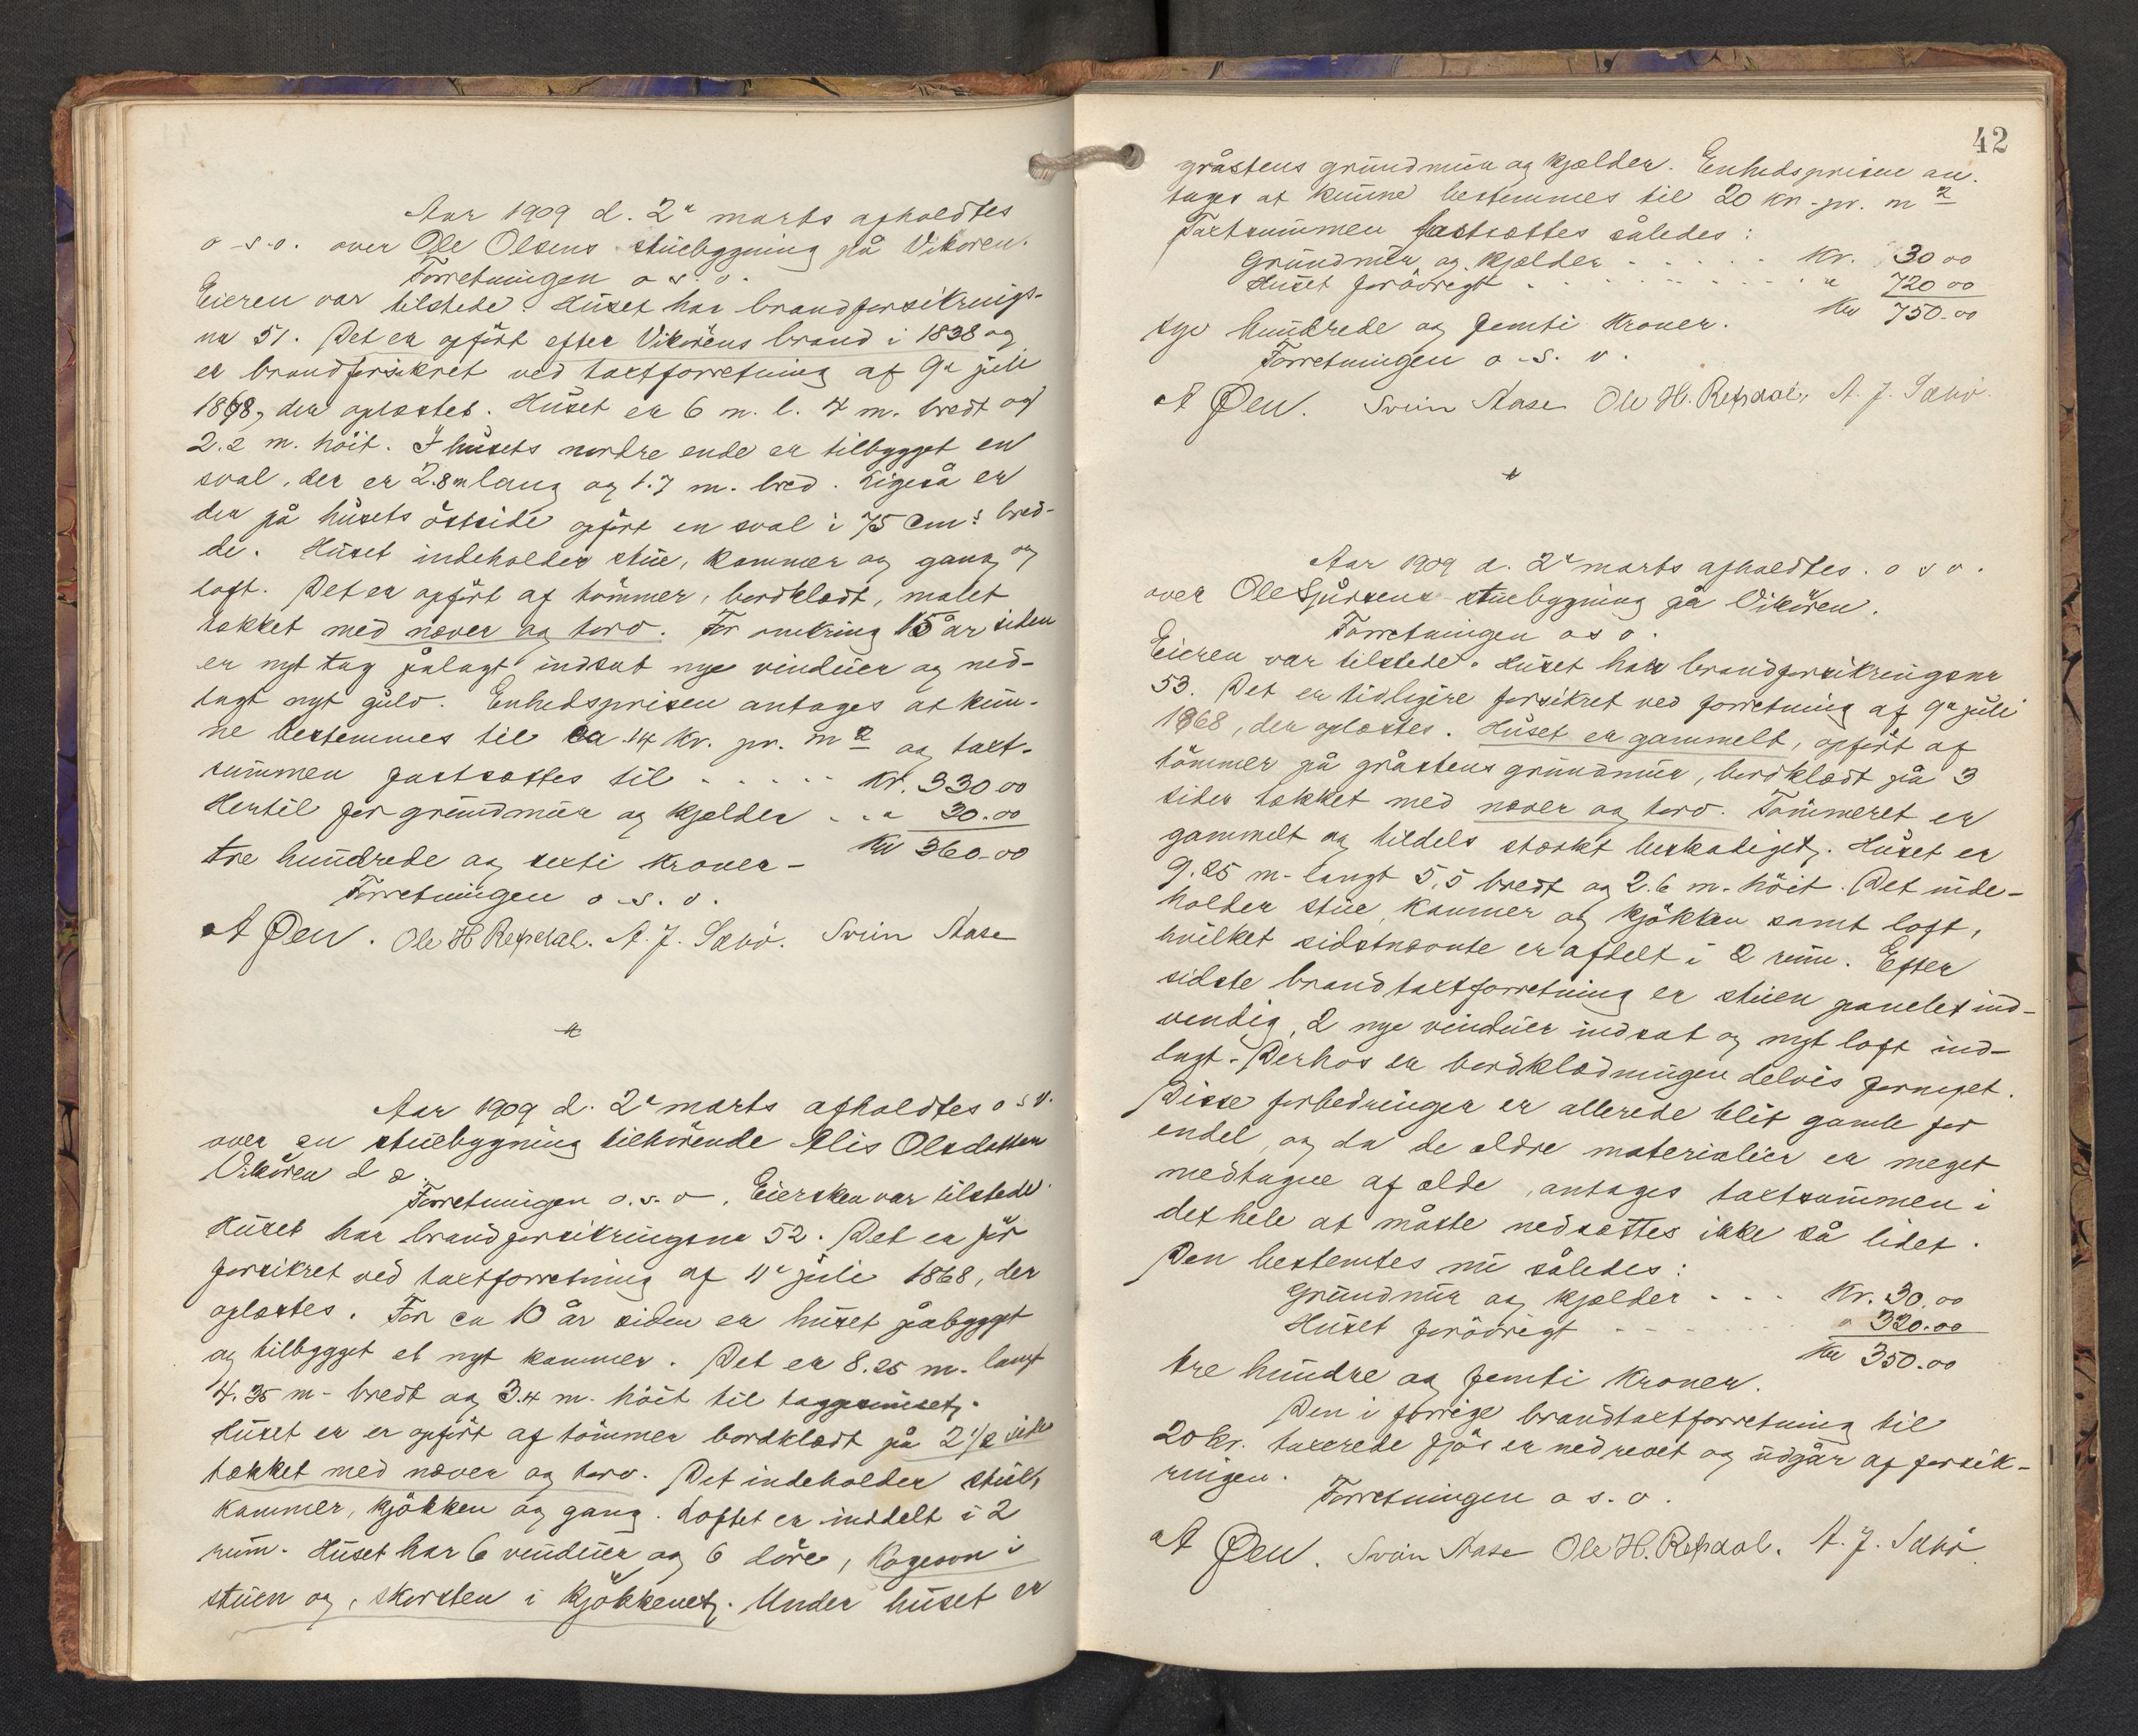 Aar 1909 d. 2n marts afholdtes
o.s.v. over Ole Olsens stuebygning på Vikøren.
Forretningen o s. v.
Eieren var tilstede. Huset har brandforsikrings-
nr 51. Det er opført efter Vikørens brand i 1838 og
er brandforsikret ved taxtforretning af 9n juli
1868, der oplæstes. Huset er 6 m. l. 4 m. bredt og
2.2 m. höit. I husets nordre ende er tilbygget en
sval, der er 2.8m lang og 1.7 m. bred. Ligeså er
der på husets östside opfört en sval i 75 cm:s bred-
de. Huset indeholder stue, kammer og gang og
loft. Det er opfört af tömmer, bordklædt, malet
tækket med næver og torv. For omkring 15 år siden
er nyt tag pålagt indsat nye vinduer og ned-
lagt nyt gulv. Enhedsprisen antages at kun-
ne bestemmes til ca 14 kr. pr. m2 og taxt-
summen fastsættes til - - - - - Kr. 330.00
Hertil for grundmur og kjælder - - " 30.00
Kr 360-00
tre hundrede og sexti kroner -
Forretningen o. s. v.
A Øen. Ole H Repdal. A. J. Sævö. Svein Aase
Aar 1909 d. 2n marts afholdtes o s v.
over en stuebygning tilhörende Alis Olsdatter
Vikören d æ.
Forretningen o. s. v. Eiersken var tilstede.
Huset har brandforsikringsnr 52. Det er för
forsikret ved taxtforretning af 11n juli 1868, der
oplæstes. For ca 10 år siden er huset påbygget
og tilbygget et nyt kammer. Det er 8.25 m. langt
4.35 m- bredt og 3.4 m. höit til taggesimset.
Huset er er opfört af tömmer bordklædt på 2 1/2 side
tækket med næver og torv. Det indeholder stue,
kammer, kjökken og gang. Loftet er inddelt i 2
rum. Huset har 6 vinduer og 6 döre, kogeovn i
stuen og skorsten i kjökkenet. Under huset er
42
gråstens grundmur og kjælder. Enhedsprisen an-
tages at kunne bestemmes til 20 kr- pr. m2
Taxtsummen fastsættes således:
Grundmur og kjælder - - - - - Kr. 30 00
Huset forövrigt - - - - - - - " 720 00
Kr 750-00
syv hundrede og femti kroner.
Forretningen o. s. v.
A Øen. Svein Aase Ole H. Repdal, A. J. Sævö.
Aar 1909 d. 2n marts afholdtes. o s v.
over Ole Sjursens stuebygning på Vikören.
Forretningen o s v.
Eieren var tilstede. Huset har brandforsikringsnr
53. Det er tidligere forsikret ved forretning af 9n juli
1868, der oplæstes. Huset er gammelt, opfört af
tömmer på gråstens grundmur, bordklædt på 3
sider tækket med næver og torv. Tömmeret er
gammelt og tildels stærkt beskadiget. Huset er
9.25 m- langt 5,5 bredt og 2.6 m. höit. Det inde-
holder stue, kammer og kjökken samt loft,
hvilket sidstnævnte er afdelt i 2 rum. Efter
sidste brandtaxtforretning er stuen panelet ind-
vendig, 2 nye vinduer indsat og nyt loft ind-
lagt. Derhos er bordklædningen delvis fornyet.
Disse forbedringer er allerede blit gamle for
endel, og da de ældre materialier er meget
medtagne af ælde, antages taxtsummen i
det hele at måtte nedsættes ikke så lidet.
Den bestemtes nu således:
Grundmur og kjælder - - - Kr. 30.00
Huset forövrigt - - - - - " 320.00
Kr 350.00
tre hundre og femti kroner.
Den i forrige brandtaxtforretning til
20 kr. taxerede fjös er nedrevet og udgår af forsik-
ringen.
Forretningen o s. v.
A Øen. Svein Aase Ole H. Repdal. A. J. Sævö.